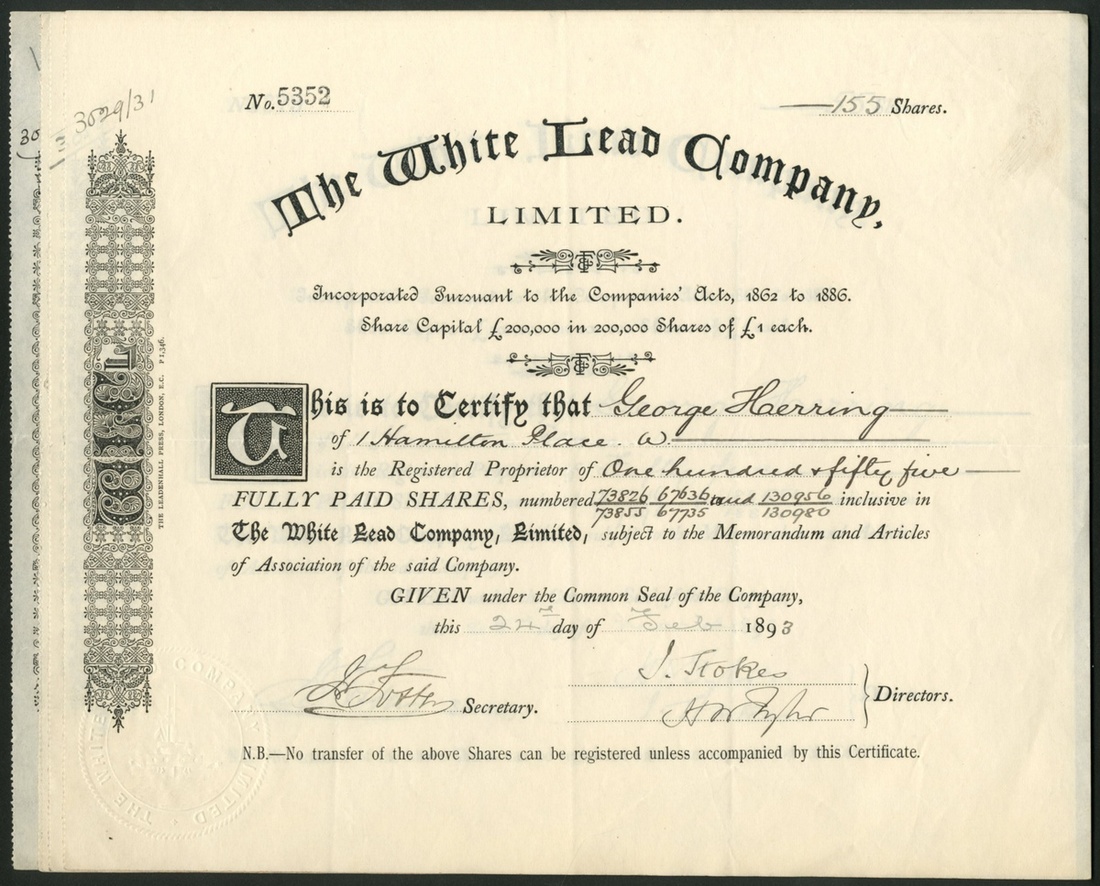 3029/31
30
No. 5352
155 Shares.
The White Lead Company,
LIMITED.
Incorporated Pursuant to the Companies' Acts, 1862 to 1886.
Share Capital £200,000 in 200,000 Shares of £1 each.
This is to Certify that George Herring
of 1 Hamilton Place. W
is the Registered Proprietor of One hundred & fifty five
FULLY PAID SHARES, numbered 73826 67636 and 130956 inclusive in
73855 67735 130980
The White Lead Company, Limited, subject to the Memorandum and Articles
of Association of the said Company.
GIVEN under the Common Seal of the Company,
this 24th day of Feb 1893
J. Stokes
Secretary.
Directors.
N.B.—No transfer of the above Shares can be registered unless accompanied by this Certificate.
THE LEADENHALL PRESS, LONDON, E.C. P 1,346.
THE WHITE LEAD COMPANY LIMITED